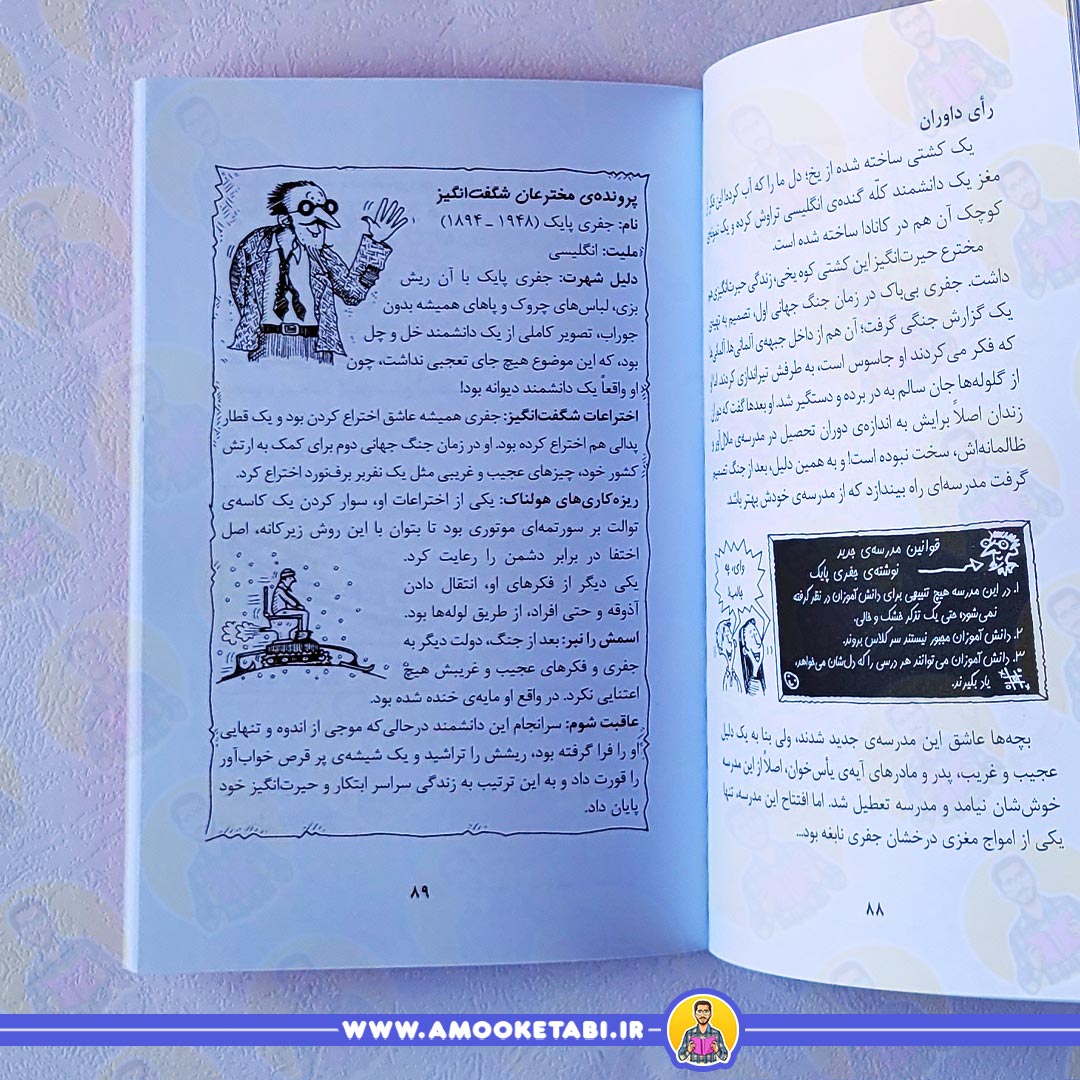 رأی داوران
یک کشتی ساخته شده از یخ؛ دل ما را که آب کرده! این فکر از
مغز یک دانشمند کلّه گنده‌ی انگلیسی تراوش کرده و یک نمونه‌ی
کوچک آن هم در کانادا ساخته شده است.
مخترع حیرت‌انگیز این کشتی کوه یخی، زندگی حیرت‌انگیزی هم
داشت. جفری بی‌باک در زمان جنگ جهانی اول، تصمیم به تهیه‌ی
یک گزارش جنگی گرفت؛ آن هم از داخل جبهه‌ی آلمانی‌ها! آلمانی‌ها
که فکر می‌کردند او جاسوس است، به طرفش تیراندازی کردند اما او
از گلوله‌ها جان سالم به در برده و دستگیر شد. او بعدها گفت که دوران
زندان اصلاً برایش به اندازه‌ی دوران تحصیل در مدرسه‌ی ملال‌آور و
ظالمانه‌اش، سخت نبوده است! و به همین دلیل، بعد از جنگ تصمیم
گرفت مدرسه‌ای راه بیندازد که از مدرسه‌ی خودش بهتر باشد.
قوانین مدرسه‌ی جدید
نوشته‌ی جفری پایک
۱. در این مدرسه هیچ تنبیهی برای دانش‌آموزان در نظر گرفته
نمی‌شود؛ حتی یک تذکر خشک و خالی.
۲. دانش‌آموزان مجبور نیستند سر کلاس بروند.
۳. دانش‌آموزان می‌توانند هر درسی را که دل‌شان می‌خواهد،
یاد بگیرند.
وای، چه
جالب!
بچه‌ها عاشق این مدرسه‌ی جدید شدند، ولی بنا به یک دلیل
عجیب و غریب، پدر و مادرهای آیه‌ی یأس‌خوان، اصلاً از این مدرسه
خوش‌شان نیامد و مدرسه تعطیل شد. اما افتتاح این مدرسه، تنها
یکی از امواج مغزی درخشان جفری نابغه بود...
۸۸
پرونده‌ی مخترعان شگفت‌انگیز
نام: جفری پایک (۱۹۴۸ ـ ۱۸۹۴)
ملیت: انگلیسی
دلیل شهرت: جفری پایک با آن ریش
بزی، لباس‌های چروک و پاهای همیشه بدون
جوراب، تصویر کاملی از یک دانشمند خل و چل
بود، که این موضوع هیچ جای تعجبی نداشت، چون
او واقعاً یک دانشمند دیوانه بود!
اختراعات شگفت‌انگیز: جفری همیشه عاشق اختراع کردن بود و یک قطار
پدالی هم اختراع کرده بود. او در زمان جنگ جهانی دوم برای کمک به ارتش
کشور خود، چیزهای عجیب و غریبی مثل یک نفربر برف‌نورد اختراع کرد.
ریزه‌کاری‌های هولناک: یکی از اختراعات او، سوار کردن یک کاسه‌ی
توالت بر سورتمه‌ای موتوری بود تا بتوان با این روش زیرکانه، اصل
اختفا در برابر دشمن را رعایت کرد.
یکی دیگر از فکرهای او، انتقال دادن
آذوقه و حتی افراد، از طریق لوله‌ها بود.
اسمش را نبر: بعد از جنگ، دولت دیگر به
جفری و فکرهای عجیب و غریبش هیچ
اعتنایی نکرد. در واقع او مایه‌ی خنده شده بود.
عاقبت شوم: سرانجام این دانشمند درحالی‌که موجی از اندوه و تنهایی
او را فرا گرفته بود، ریشش را تراشید و یک شیشه‌ی پر قرص خواب‌آور
را قورت داد و به این ترتیب به زندگی سراسر ابتکار و حیرت‌انگیز خود
پایان داد.
۸۹
WWW.AMOOKETABI.IR